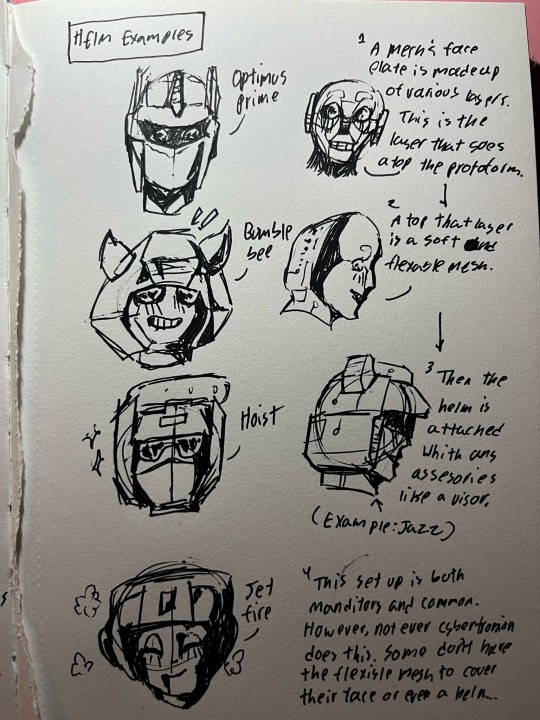 Helm Examples
Optimus
Prime
Bumble
bee
Hoist
Jet
fire
1 A Mech's face
plate is made up
of various layers.
This is the
layer that goes
atop the protoform.
2 A top that layer
is a soft
flexable mesh.
3 Then the
helm is
attached
whith any
assesories
like a visor.
(Example: Jazz)
4 This set up is both
manditory and common.
However, not ever cybertronian
does this. Some don't have
the flexible mesh to cover
their face or even a helm...